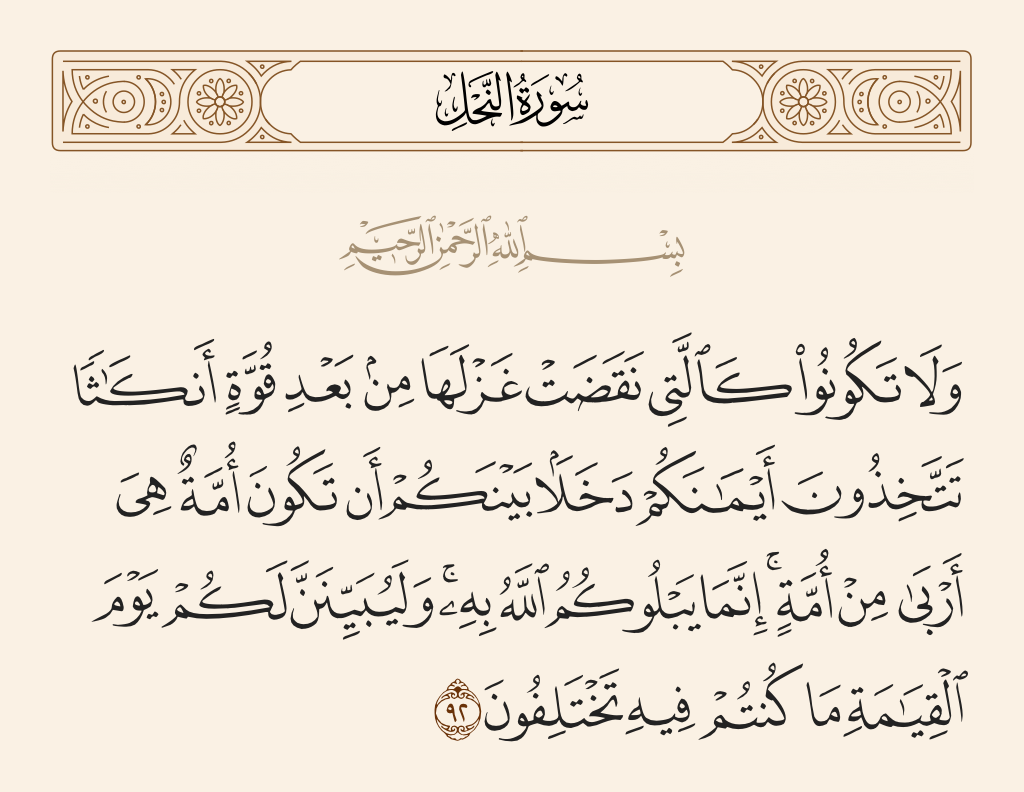 سُورَةُ النَّحْلِ
بِسْمِ ٱللَّهِ ٱلرَّحْمَٰنِ ٱلرَّحِيمِ
وَلَا تَكُونُوا۟ كَٱلَّتِى نَقَضَتْ غَزْلَهَا مِنۢ بَعْدِ قُوَّةٍ أَنكَٰثًا
تَتَّخِذُونَ أَيْمَٰنَكُمْ دَخَلًۢا بَيْنَكُمْ أَن تَكُونَ أُمَّةٌ هِىَ
أَرْبَىٰ مِنْ أُمَّةٍ ۚ إِنَّمَا يَبْلُوكُمُ ٱللَّهُ بِهِۦ ۚ وَلَيُبَيِّنَنَّ لَكُمْ يَوْمَ
ٱلْقِيَٰمَةِ مَا كُنتُمْ فِيهِ تَخْتَلِفُونَ ٩٢